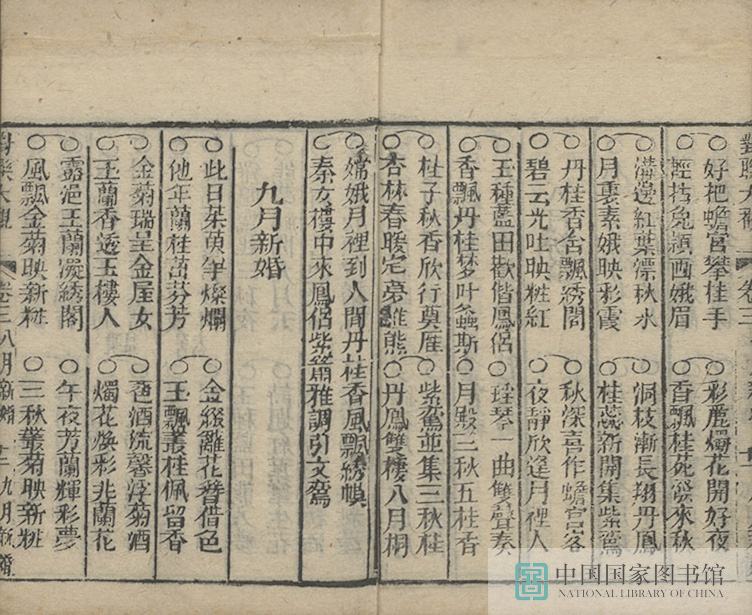 對聯大觀 卷三
好把蟾宮攀桂手 彩麗燭花開好夜
輕描兔穎畫娥眉 香飄桂死發來秋
溝邊紅葉漂秋水 洞枝漸長翔丹鳳
月裏素娥映彩霞 桂蕊新開集紫鸞
丹桂香含飄綉閣 秋深喜作蟾宮客
碧云光吐映粧紅 夜靜欣逢月裡人
玉種藍田歡偕鳳侶 瑤琴一曲雙聲奏
香飄丹桂梦叶螽斯 月殿三秋五桂香
杜子秋香欣行奠雁 紫鸞並集三秋桂
杏林春暖定夢維熊 丹鳳雙棲八月桐
嫦娥月裡到人間丹桂香風飄綉幌
秦女樓中來鳳侶紫簫雅調引文鸞
九月新婚
此日茱萸年燦爛 金綴離花釵借色
他年蘭桂茁芬芳 玉飄叢桂佩留香
金菊瑞呈金屋女 卺酒流馨浮菊酒
玉蘭香透玉樓人 燭花煥彩兆蘭花
露浥玉蘭凝綉閣 午夜芳蘭輝彩夢
風飄金菊映新粧 三秋叢菊映新粧
對聯大觀 卷三 八月新婚 十二 九月新婚
中国国家图书馆
NATIONAL LIBRARY OF CHINA